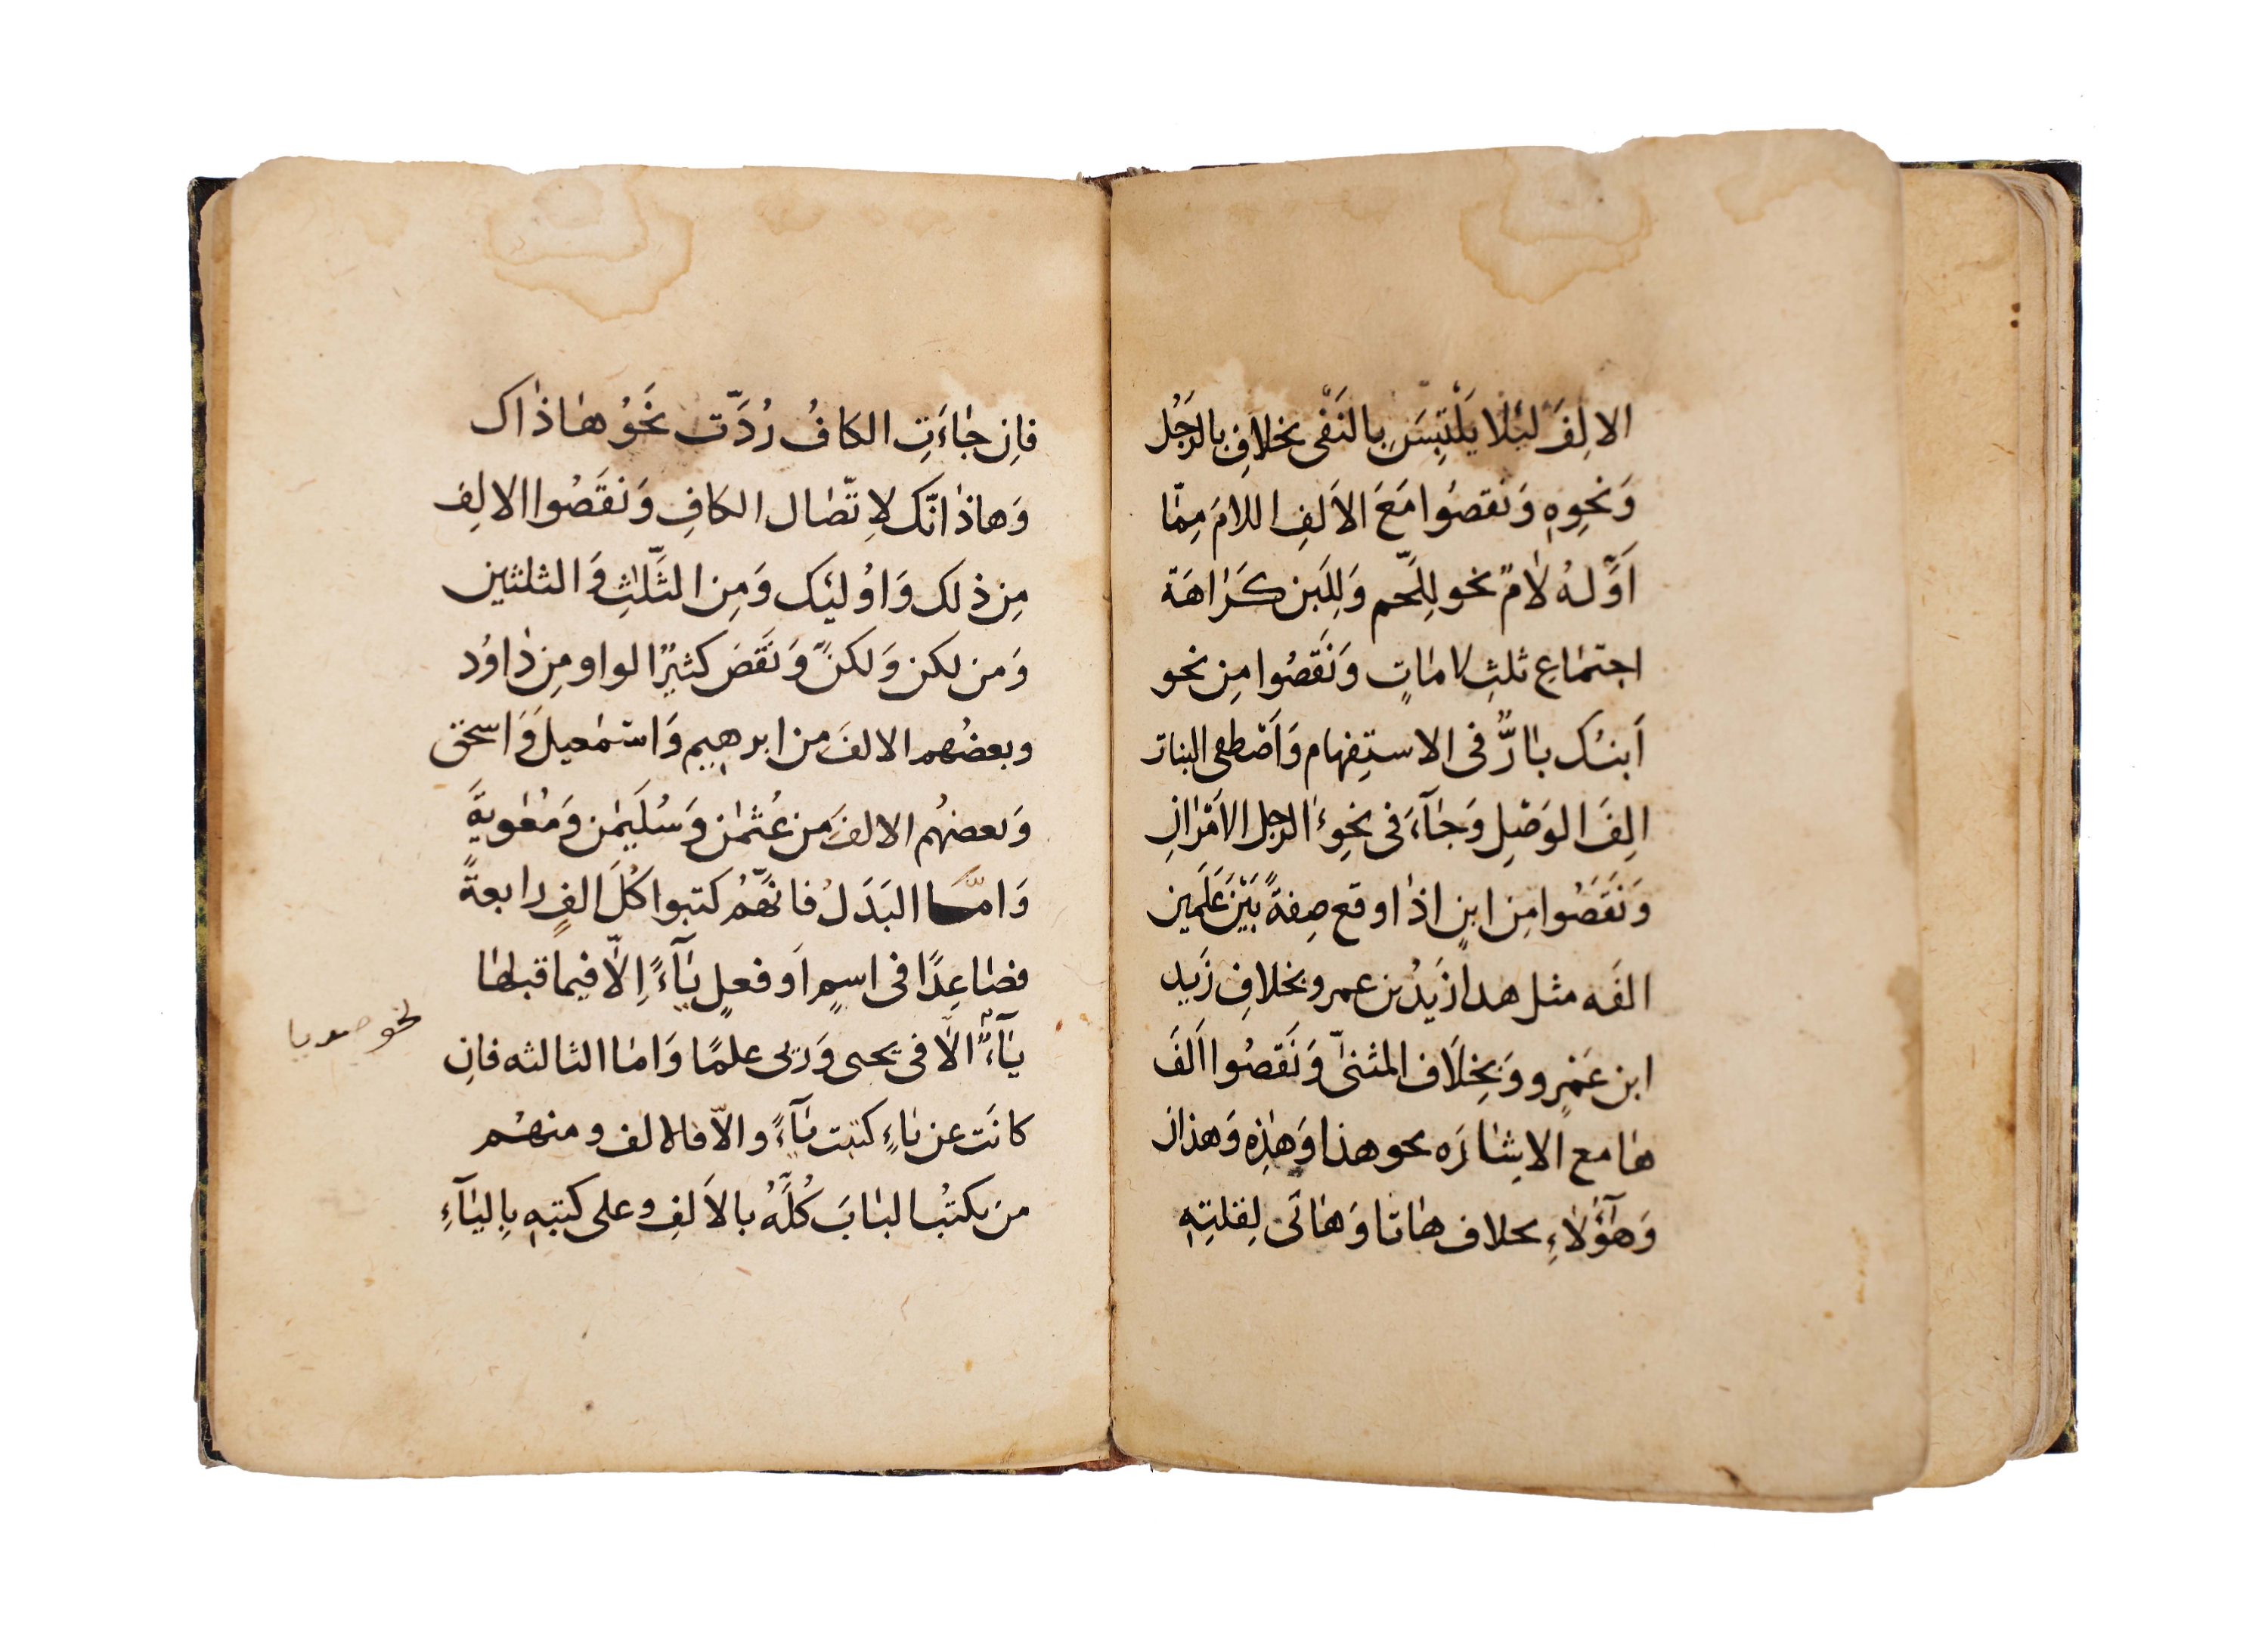 الالِفَ لئلا يَلْتَبِسَ بِالنَفْى بخلافِ بالرَجُل
وَنحوِهٖ وَنقصُوا مَعَ الاَلفِ اللامَ مِمّا
اَوَّلهُ لامٌ نحو لِلَّحم وَلِلَّبن كَرَاهَة
اجتمَاعِ ثلثِ لامَاتٍ وَنَقَصُوا مِن نحو
اَبنُك بَارٌّ فى الاستِفهام وَاَصْطفى البنات
الِفَ الوَصْلِ وَجَآءَ فى نحِوءَ الرجل الاَمْرَانِ
وَنَقَصُوا مِن ابنٍ اذا وقع صِفةً بَيْنَ عَلَمَين
الفَه مثل هدا زَيدُ بن عمرو بخلافِ زَيد
ابن عَمْرٍو وَبِخِلَاف المثنىّٰ وَنَقَصُوا اَلفَ
هَا مع الاِشَارَه نحو هذا وَهٰذِه وَهذان
وَهٰؤُلآءِ بحلاف هَاتا وَهَاتى لِقلتِهٖ
فاِن جَاءَتِ الكافُ رُدَّت نَحْوُ هَاذاك
وَهاذانّك لاِتّصَال الكافِ وَنَقَصُوا الالِفَ
مِن ذلك وَاوُلئِك وَمِن الثَّلٰثِ وَالثلثين
وَمن لكن وَلكنّ وَنَقَصَ كثيرٌ الواو مِن دَاوُد
وبعضُهم الالفَ من ابرهيم وَاسمٰعيلَ وَاسحق
وَبعضهُم الالفَ من عُثمٰن وَسُلَيمٰن وَمُعٰويةَ
وَامَّا البَدَلُ فانَّهُمْ كتبوا كُلَّ الفٍ رابعةً
فصَاعِدًا فى اسمٍ اَو فعلٍ يَآءً اِلّا فيما قبلهَا
يَآءٌ الّا فى يحيى وَرَيّى علمًا وَامَا الثالثه فاِن
نحو صديا
كانَت عن يَاءٍ كتبت يَآءً والاّ فالالف ومنهُم
من يكتُب البَابَ كُلَّهُ بالاَلفِ وعلى كتبِهٖ بِاليَآءِ